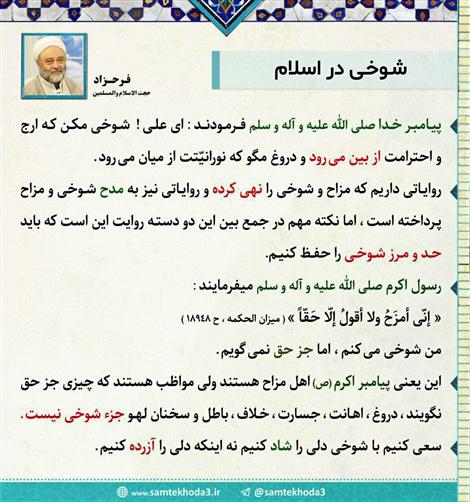 شوخی در اسلام
فرحزاد
حجت الاسلام والمسلمین
پیامبر خدا صلی الله علیه و آله و سلم فرمودند : ای علی ! شوخی مکن که ارج
و احترامت از بین می‌رود و دروغ مگو که نورانیّتت از میان می‌رود.
روایاتی داریم که مزاح و شوخی را نهی کرده و روایاتی نیز به مدح شوخی و مزاح
پرداخته است ، اما نکته مهم در جمع بین این دو دسته روایت این است که باید
حد و مرز شوخی را حفظ کنیم.
رسول اکرم صلی الله علیه و آله و سلم میفرمایند :
« إنّی أمزَحُ ولا أقولُ إلّا حَقّاً » ( میزان الحکمه ، ح ۱۸۹۴۸ )
من شوخی می‌کنم ، اما جز حق نمی‌گویم.
این یعنی پیامبر اکرم (ص) اهل مزاح هستند ولی مواظب هستند که چیزی جز حق
نگویند ، دروغ ، اهانت ، جسارت ، خلاف ، باطل و سخنان لهو جزء شوخی نیست.
سعی کنیم با شوخی دلی را شاد کنیم نه اینکه دلی را آزرده کنیم.
www.samtekhoda3.ir @samtekhoda3